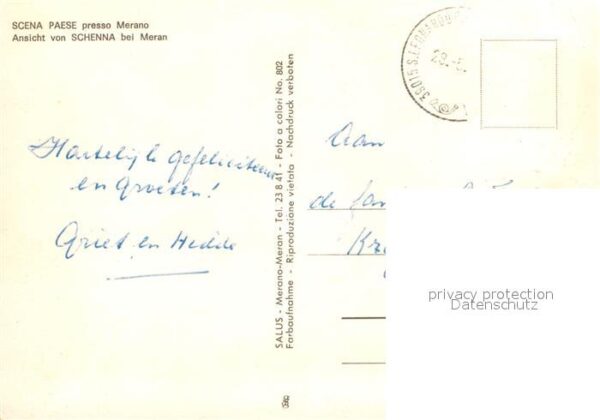 SCENA PAESE presso Merano
Ansicht von SCHENNA bei Meran
Hartelijk gefeliciteerd
en Groeten!
Griet en Hedde
SALUS - Merano-Meran - Tel. 23 8 41 - Foto a colori No. 802
Farbaufnahme - Riproduzione vietata - Nachdruck verboten
39015 S. LEONARDO
29.-5.
Aan
de fam
Kr
privacy protection
Datenschutz